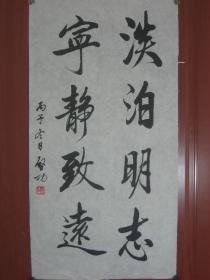 淡泊明志
寧静致遠
丙子冬日啓功